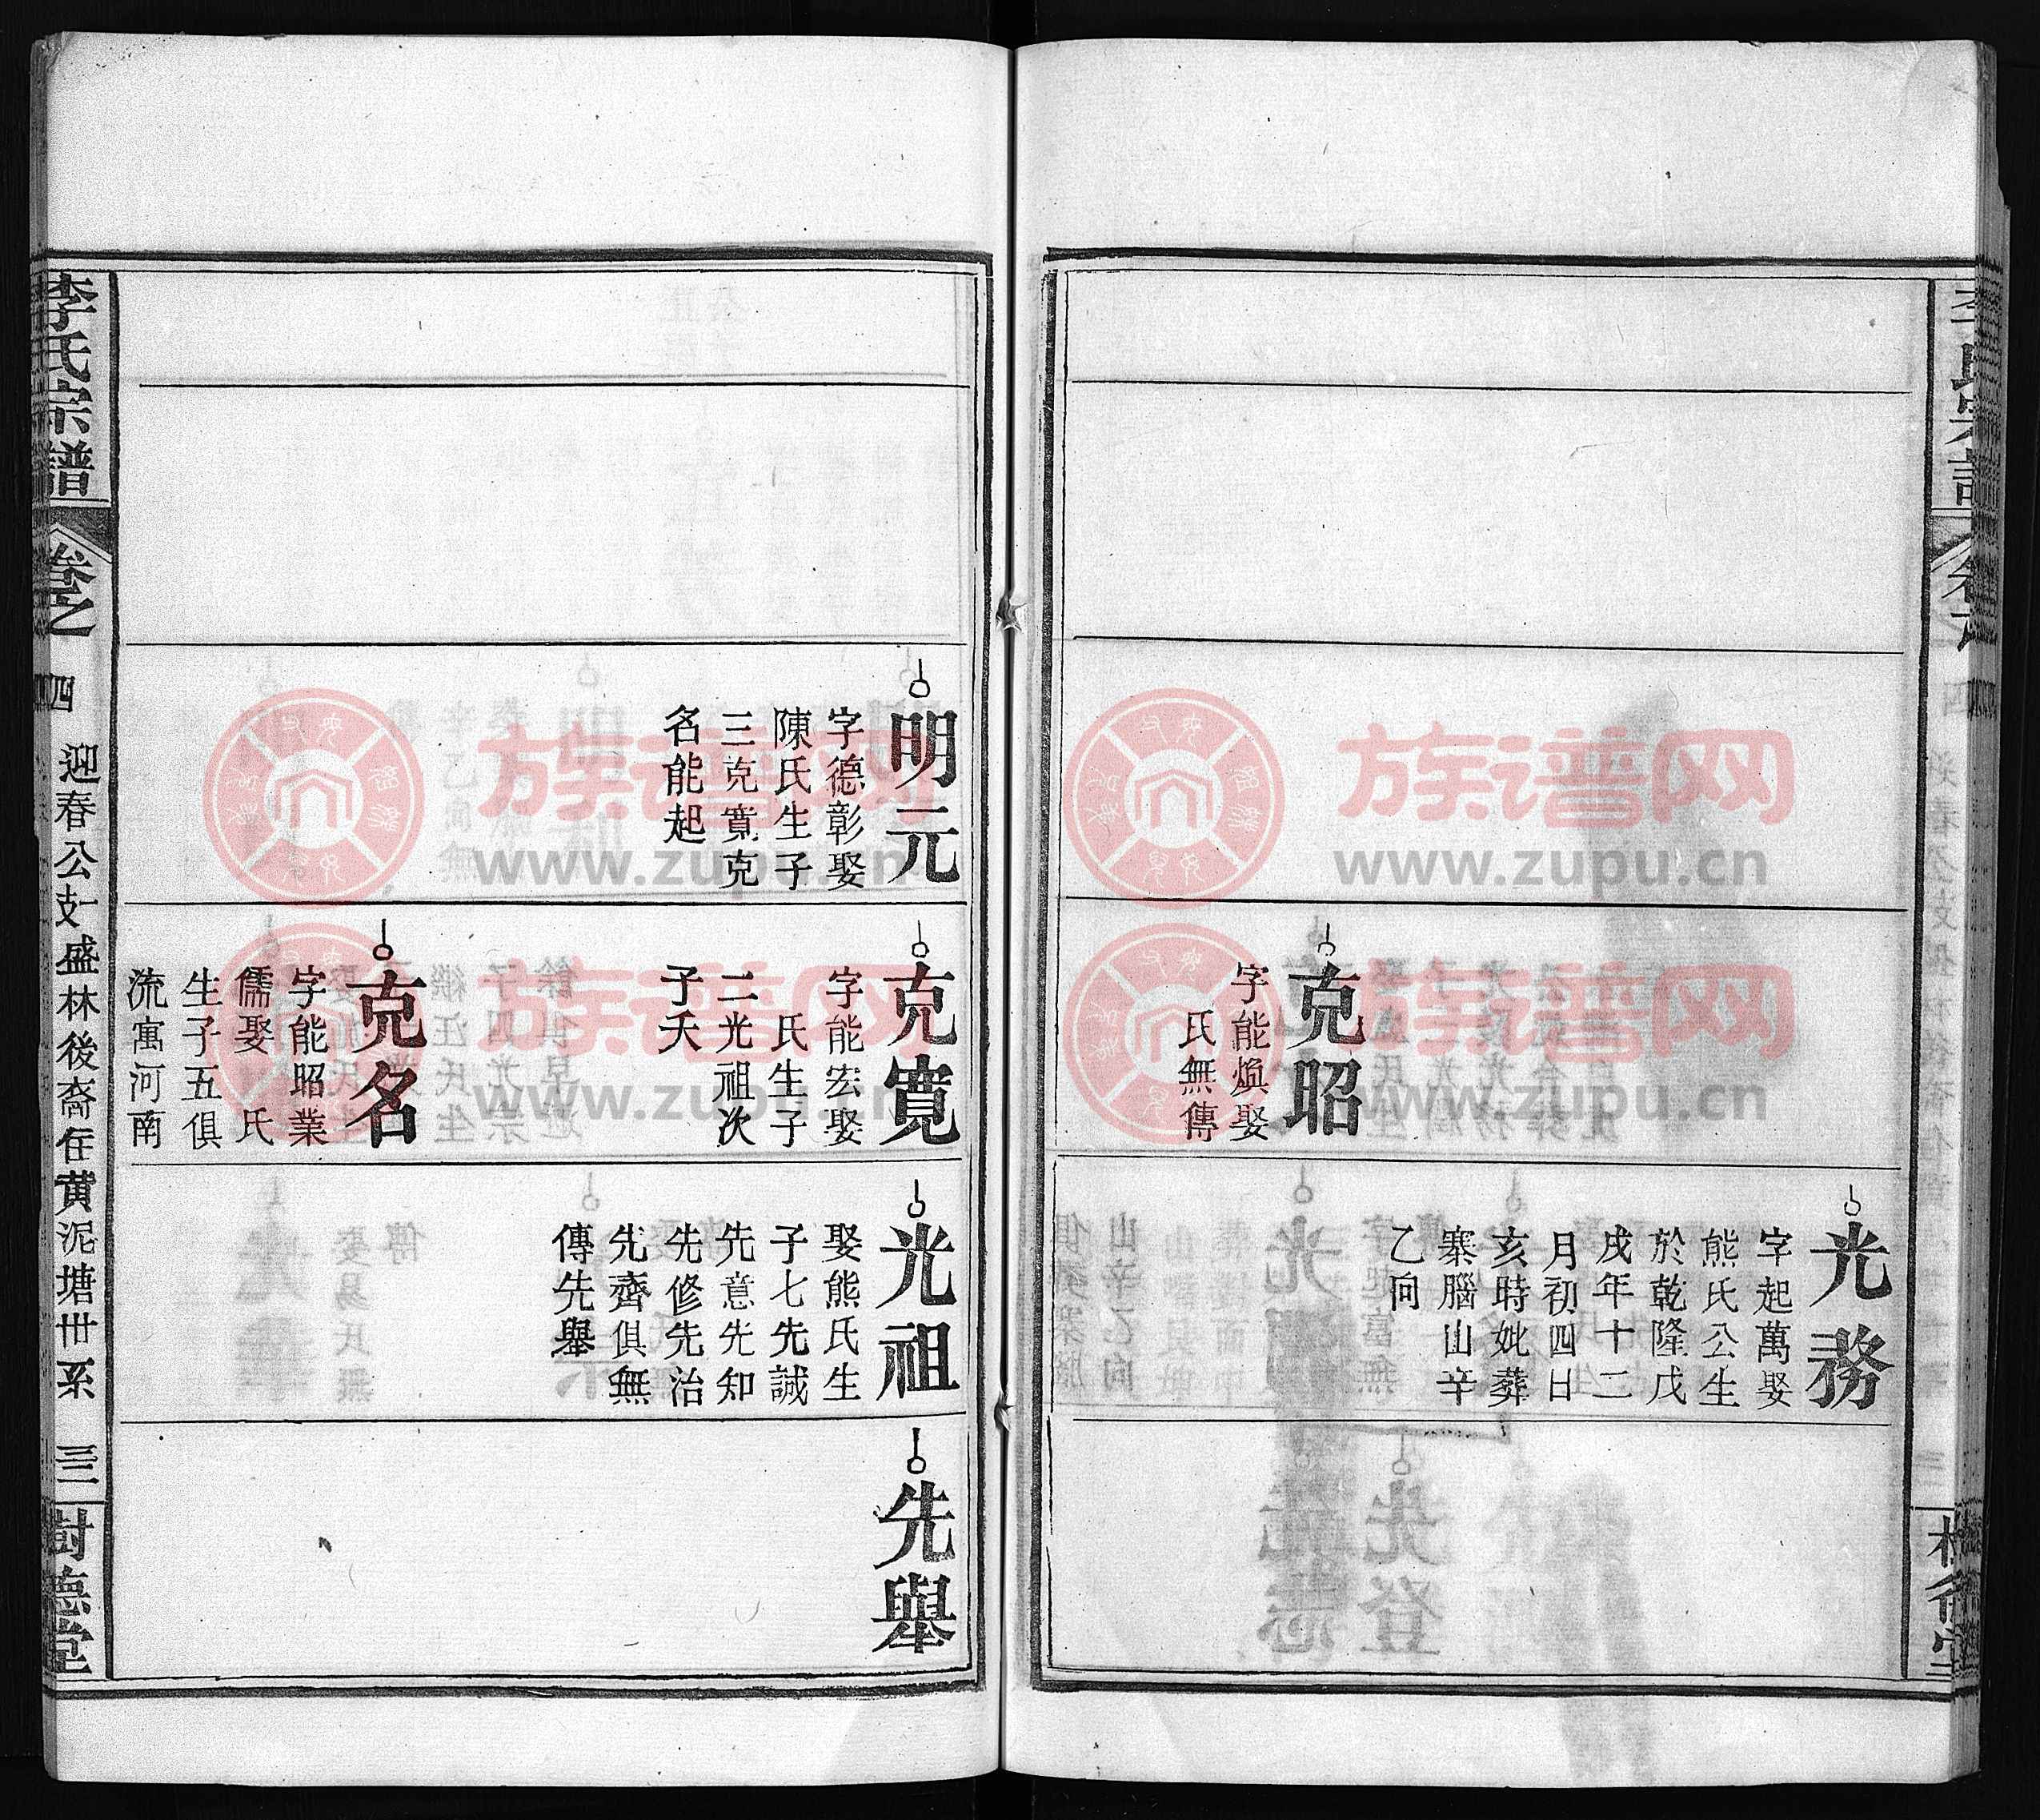 光務
字起萬娶
熊氏公生
於乾隆戊
戌年十二
月初四日
亥時妣葬
寨腦山辛
乙向
克昭
字能煥娶
氏無傳
明元
字德彰娶
陳氏生子
三克寬克
名能起
克寬
字能宏娶
氏生子
二光祖次
子夭
克名
字能昭業
儒娶 氏
生子五俱
流寓河南
光祖
娶熊氏生
子七先誠
先意先知
先修先治
先齊俱無
傳先舉
先舉
李氏宗譜
卷之
四
迎春公支盛林後裔在黄泥塘世系
三
樹德堂
族谱网
www.zupu.cn
族谱网
www.zupu.cn
族谱网
www.zupu.cn
族谱网
www.zupu.cn